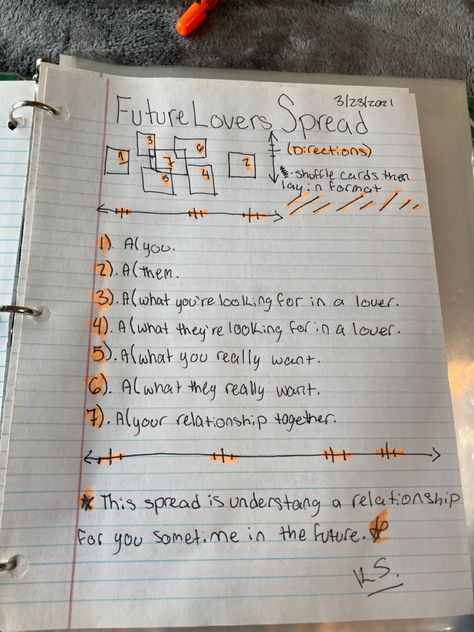 3/23/2021
Future Lovers Spread
(Directions)
*-shuffle cards then
lay in format
3 6
1 7 2
5 4
1). A(you.
2). A(them.
3). A(what you're looking for in a lover.
4). A(what they're looking for in a lover.
5). A(what you really want.
6). A(what they really want.
7). A(your relationship together.
* This spread is understang a relationship
for you sometime in the future. *
K.S.